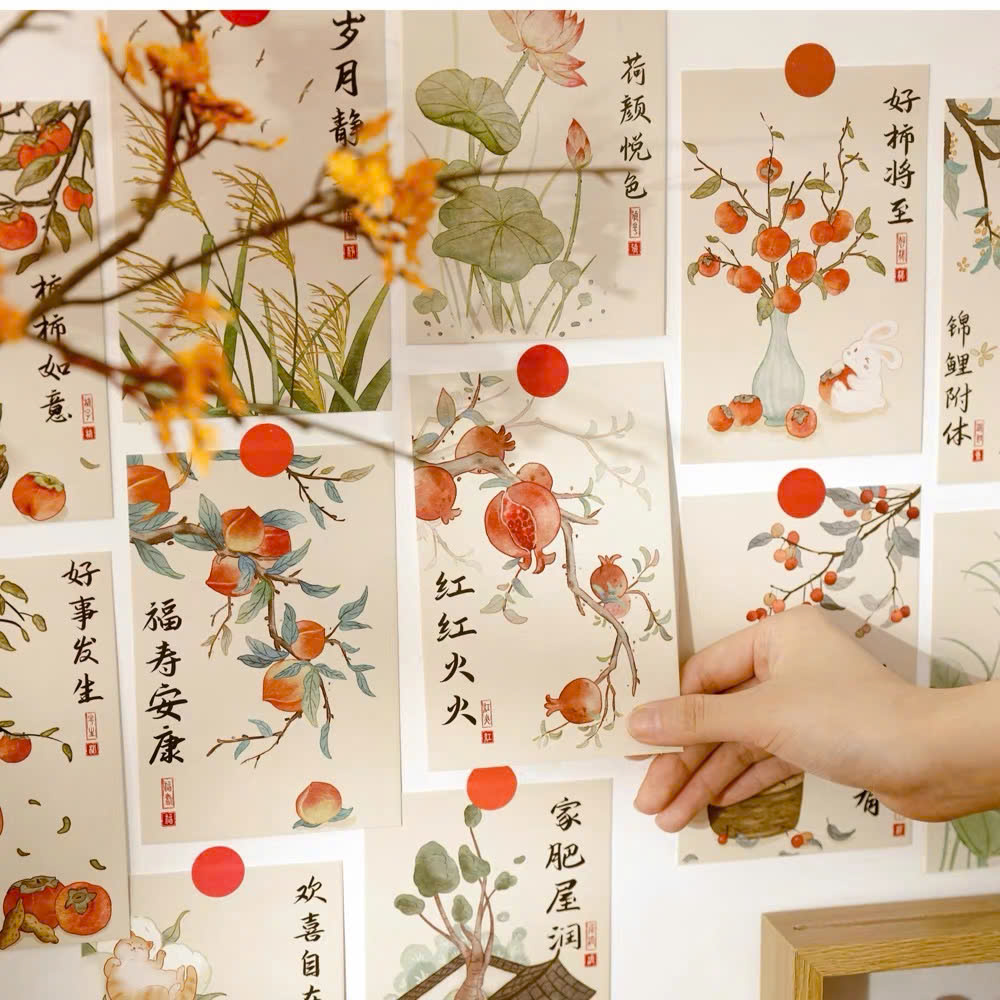 岁月静
荷颜悦色
好柿将至
柿柿如意
锦鲤附体
好事发生
福寿安康
红红火火
家肥屋润
欢喜自在